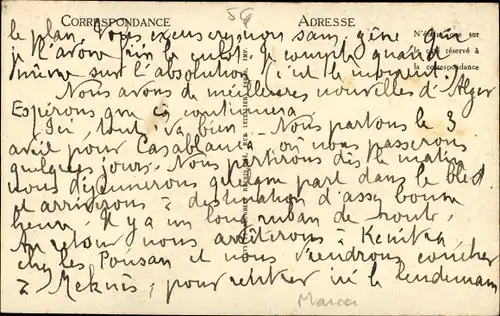 CORRESPONDANCE
59
ADRESSE
N'écrire rien sur
le côté réservé à
la correspondance
le plan. Vous excuserez mon sans gêne que
je l'avoue j'ai le culot. Je compte quand
même sur l'absolution, c'est le moment!
Nous avons de meilleures nouvelles d'Alger
Espérons que ça continuera.
Ici, tout va bien. Nous partons le 3
avril pour Casablanca où nous passerons
quelques jours. Nous partirons dès le matin
nous déjeunerons quelque part dans le bled
et arriverons à destination d'assez bonne
heure. Il y a un long ruban de route.
Au retour nous arrêterons à Kenitra
chez les Pousan et nous viendrons coucher
à Meknès, pour rentrer ici le lendemain
Maroc